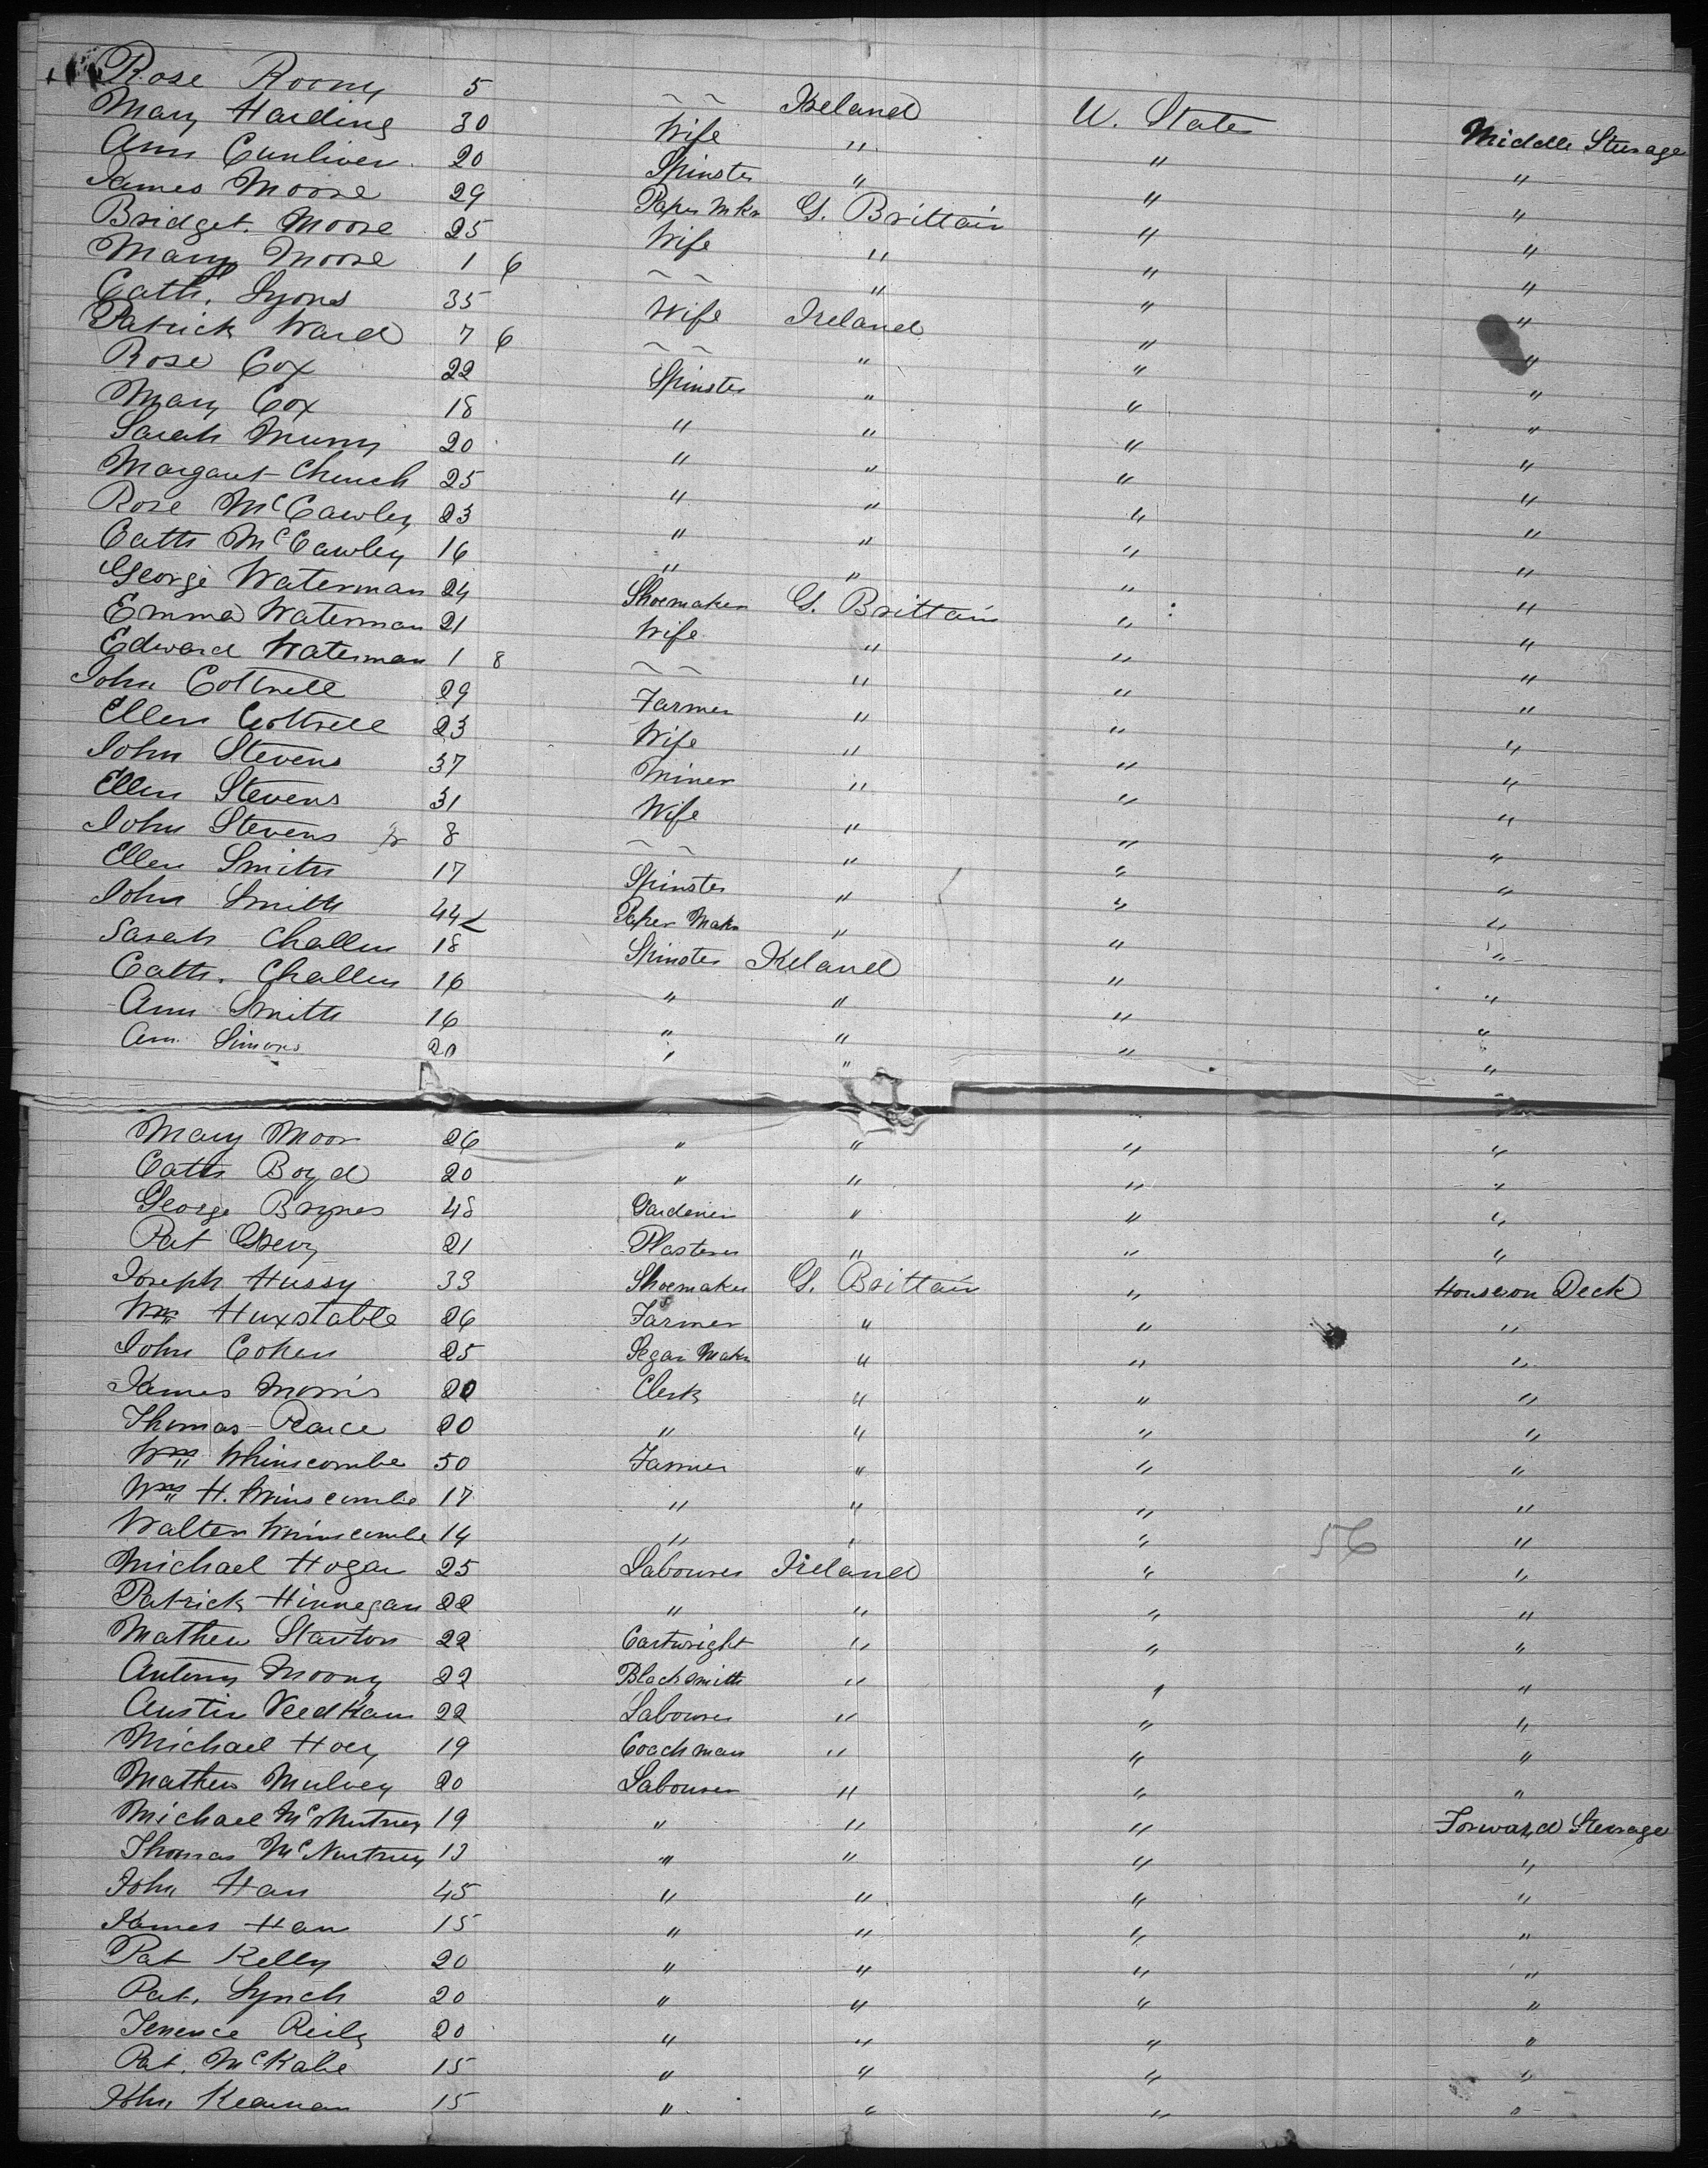 Rose Roony 5 ~ ~ Ireland U. States Middle Steerage
Mary Harding 30 Wife " " "
Ann Cunliven 20 Spinster " " "
James Moore 29 Paper Mkr G. Brittain " "
Bridget. Moore 25 Wife " " "
Mary Moore 1 6 ~ ~ " " "
Cath. Lyons 35 Wife Ireland " "
Patrick Ward 7 6 ~ ~ " " "
Rose Cox 22 Spinster " " "
Mary Cox 18 " " " "
Sarah 20 " " " "
Margaret Church 25 " " " "
Rose McCawley 23 " " " "
Cath McCawley 16 " " " "
George Waterman 24 Shoemaker G. Brittain " "
Emma Waterman 21 Wife " " "
Edward Waterman 1 8 ~ ~ " " "
John Cottrell 29 Farmer " " "
Ellen Cottrell 23 Wife " " "
John Stevens 37 Miner " " "
Ellen Stevens 31 Wife " " "
John Stevens Jr 8 ~ ~ " " "
Ellen Smith 17 Spinster " " "
John Smith 44 Paper Makr " " "
Sarah Challen 18 Spinster Ireland " "
Cath. Challen 16 " " " "
Ann Smith 16 " " " "
Ann Simons 20 " " " "
Mary Moor 26 " " " "
Cath Boyd 20 " " " "
George Brynes 48 Gardener " " "
Pat 21 Plasterer " " "
Joseph Hussy 33 Shoemaker G. Brittain " House on Deck
Wm Huxstable 26 Farmer " " "
John Cohen 25 Segar Makr " " "
James Morris 20 Clerk " " "
Thomas Pearce 20 " " " "
Wm Whinscombe 50 Farmer " " "
Wm H. Winscombe 17 " " " "
Walter Winscombe 14 " " " 56 "
Michael Hogan 25 Labourer Ireland " "
Patrick Hinnegan 22 " " " "
Mathew Stanton 22 Cartwright " " "
Antony Moony 22 Blacksmith " " "
Austin 22 Labourer " " "
Michael Hoey 19 Coachman " " "
Mathew Mulvey 20 Labourer " " "
Michael McNutney 19 " " " Forward Steerage
Thomas McNurtney 13 " " " "
John Han 45 " " " "
James Han 15 " " " "
Pat Kelly 20 " " " "
Pat. Lynch 20 " " " "
Terrence Reily 20 " " " "
Pat. McKabe 15 " " " "
John Kearnan 15 " " " "